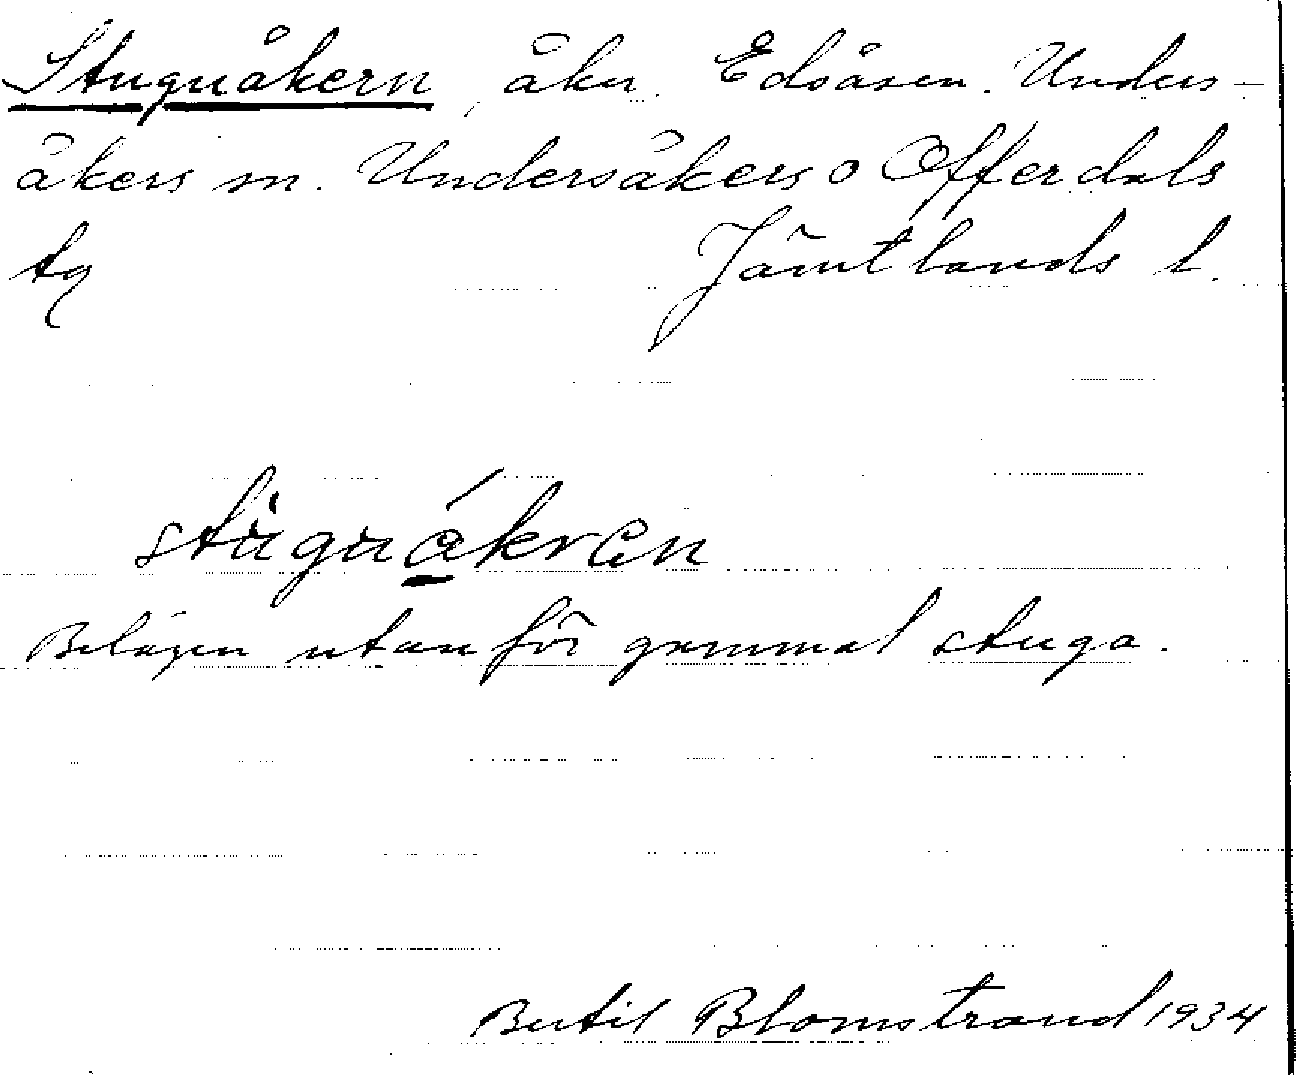 Stuguåkern, åker. Edsåsen. Unders-
åkers sn. Undersåkers o Offerdals
tg Jämtlands l.
stuguåkren
Belägen utanför gammal stuga.
Bertil Blomstrand 1934